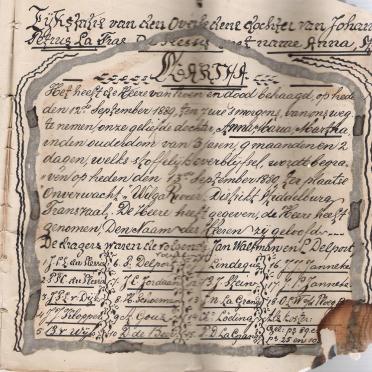 Lijkstatie van den Overledene dochter van Johan
Petrus La Gra met name Anna M
MARTHA
Het heeft de Heere van leven en dood behaagd, op hede
den 12de September 1889, ten ure 3 morgens, van ons weg
te nemen, onze geliefde dochter, Anna Maria Martha
in den ouderdom van 5 jaren, 9 maanden en 2
dagen, welks stoffelijk overblijfsel, werdt begra-
ven op heden den 13de September 1889, ter plaatse
Onverwacht Wilge Rivier, District Middelburg
Transvaal, De Heere heeft gegeven, de Heere heeft
genomen, Den Naam des Heeren zij geloofd
De dragers waren de volgende, Jan Waltman en L Delport
1 du Pless 6 P. Delpor Lindeque 16 Janneke
2 du Ples 7 J.C. Jordaan 13 F. Steen 17 Janneke
3 v Dijk 8 H. Schoeman N La Grang 18
4 Kloppe 9 K. Gouz Loding
5 v Wijk 10 D de Be D La Grang ps 25 en 10